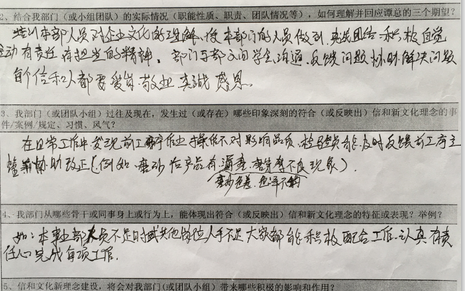 2、结合我部门（或小组团队）的实际情况（职能性质、职责、团队情况等），如何理解并回应谭总的三个期望?
培训本部人员对企业文化的理解，使本部门的人员做到真诚团结 积极 自觉
主动有责任有担当的精神。部门与部门间学会沟通，反馈问题 协助 解决问题
自信 人人都要爱岗 敬业 真诚 感恩。
3、我部门（或团队小组）过往及现在，发生过（或存在）哪些印象深刻的符合（或反映出）信和新文化理念的事
件/案例/规定、习惯、风气?
在日常工作中发现前工序作业操作不对影响品质，检验员能及时反馈前工序主
管 协助改正（例如 磨砂 后产品有 不良现象）。
4、我部门从哪些骨干或同事身上或行为上，能体现出符合（或反映出）信和新文化理念的特征或表现？举例?
如：本事业部人员不足时或其他岗位人手不足 大家都能积极配合工作，认真有责
任心完成自项工作。
5、信和新文化理念建设，将会对我部门（或团队小组）带来哪些积极的影响和作用?